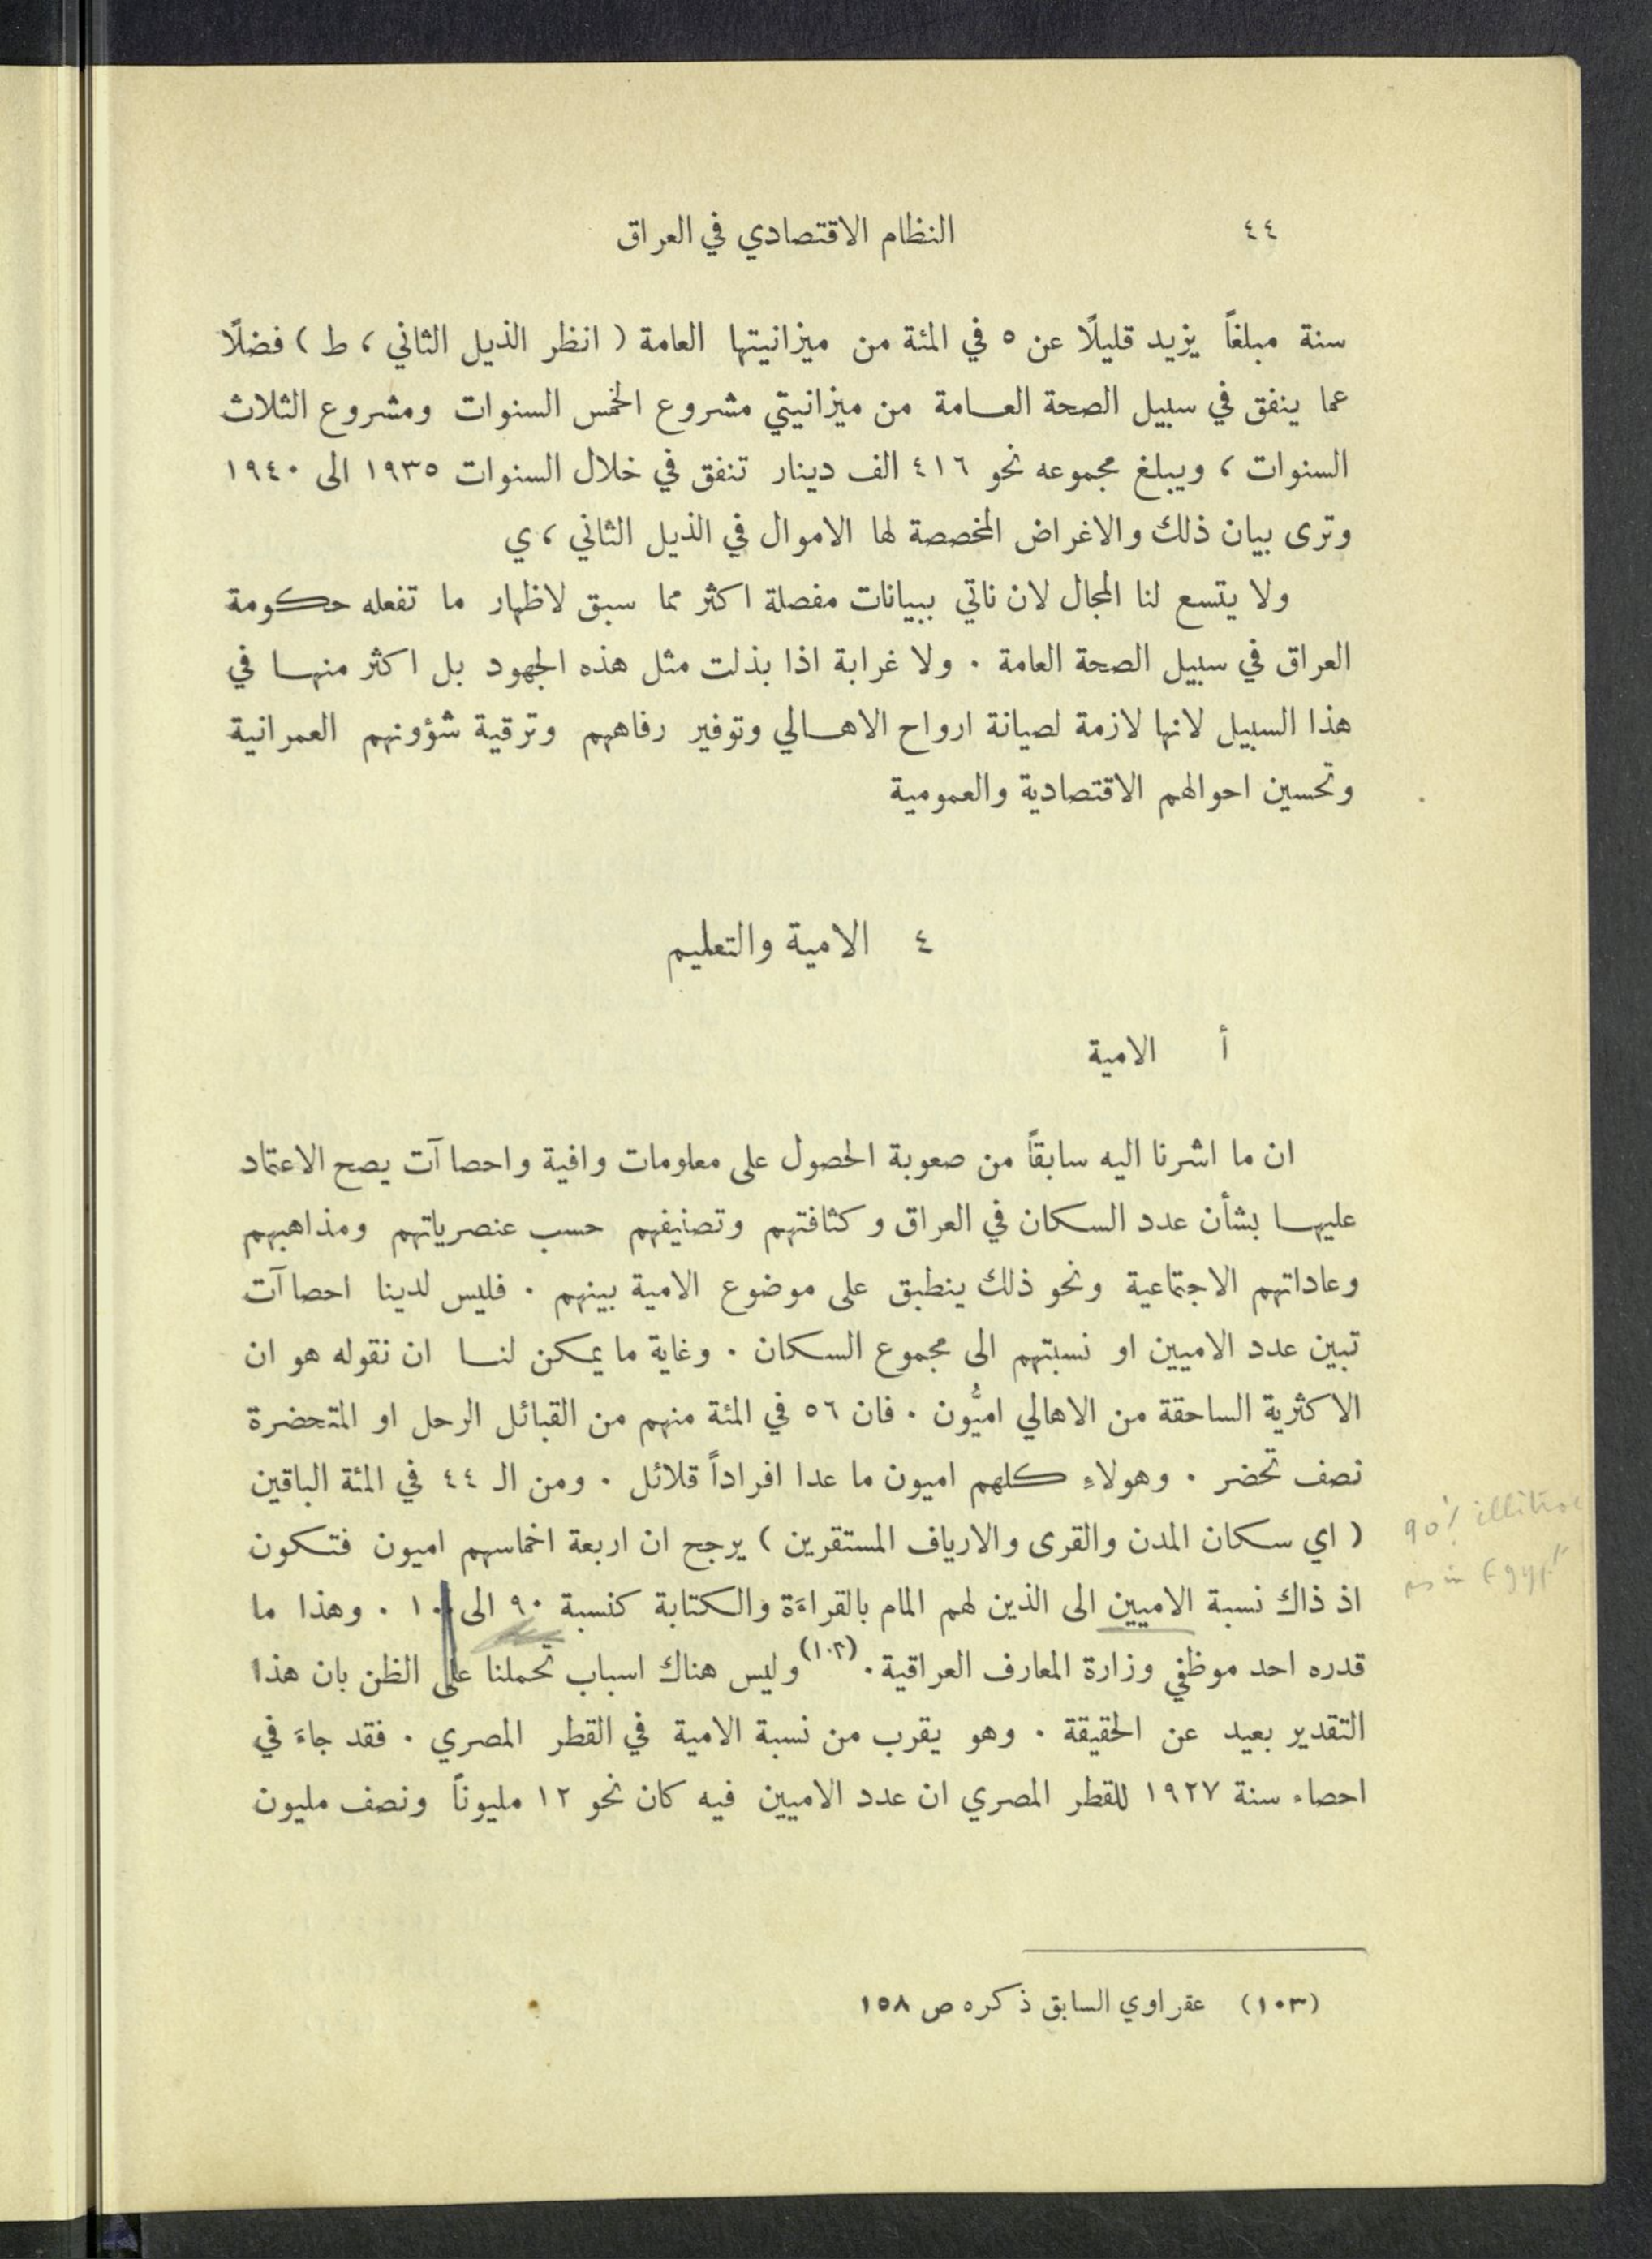 ٤٤ النظام الاقتصادي في العراق
سنة مبلغاً يزيد قليلًا عن ٥ في المئة من ميزانيتها العامة ( انظر الذيل الثاني ، ط ) فضلًا
عما ينفق في سبيل الصحة العـامة من ميزانيتي مشروع الخمس السنوات ومشروع الثلاث
السنوات ، ويبلغ مجموعه نحو ٤١٦ الف دينار تنفق في خلال السنوات ١٩٣٥ الى ١٩٤٠
وترى بيان ذلك والاغراض المخصصة لها الاموال في الذيل الثاني ، ي
ولا يتسع لنا المجال لان ناتي ببيانات مفصلة اكثر مما سبق لاظهار ما تفعله حكومة
العراق في سبيل الصحة العامة . ولا غرابة اذا بذلت مثل هذه الجهود بل اكثر منهـا في
هذا السبيل لانها لازمة لصيانة ارواح الاهـالي وتوفير رفاههم وترقية شؤونهم العمرانية
وتحسين احوالهم الاقتصادية والعمومية
٤ الامية والتعليم
أ الامية
ان ما اشرنا اليه سابقاً من صعوبة الحصول على معلومات وافية واحصاآت يصح الاعتماد
عليهـا بشأن عدد السكان في العراق وكثافتهم وتصنيفهم حسب عنصرياتهم ومذاهبهم
وعاداتهم الاجتماعية ونحو ذلك ينطبق على موضوع الامية بينهم . فليس لدينا احصاآت
تبين عدد الاميين او نسبتهم الى مجموع السكان . وغاية ما يمكن لنـا ان نقوله هو ان
الاكثرية الساحقة من الاهالي اميُّون . فان ٥٦ في المئة منهم من القبائل الرحل او المتحضرة
نصف تحضر . وهولاءِ كلهم اميون ما عدا افراداً قلائل . ومن الـ ٤٤ في المئة الباقين
( اي سكان المدن والقرى والارياف المستقرين ) يرجح ان اربعة اخماسهم اميون فتكون
90% illitrae
as in Egypt
اذ ذاك نسبة الاميين الى الذين لهم المام بالقراءَة والكتابة كنسبة ٩٠ الى ١٠ . وهذا ما
قدره احد موظفي وزارة المعارف العراقية . (١٠٣) وليس هناك اسباب تحملنا على الظن بان هذا
التقدير بعيد عن الحقيقة . وهو يقرب من نسبة الامية في القطر المصري . فقد جاءَ في
احصاء سنة ١٩٢٧ للقطر المصري ان عدد الاميين فيه كان نحو ١٢ مليوناً ونصف مليون
(١٠٣) عقراوي السابق ذكره ص ١٥٨